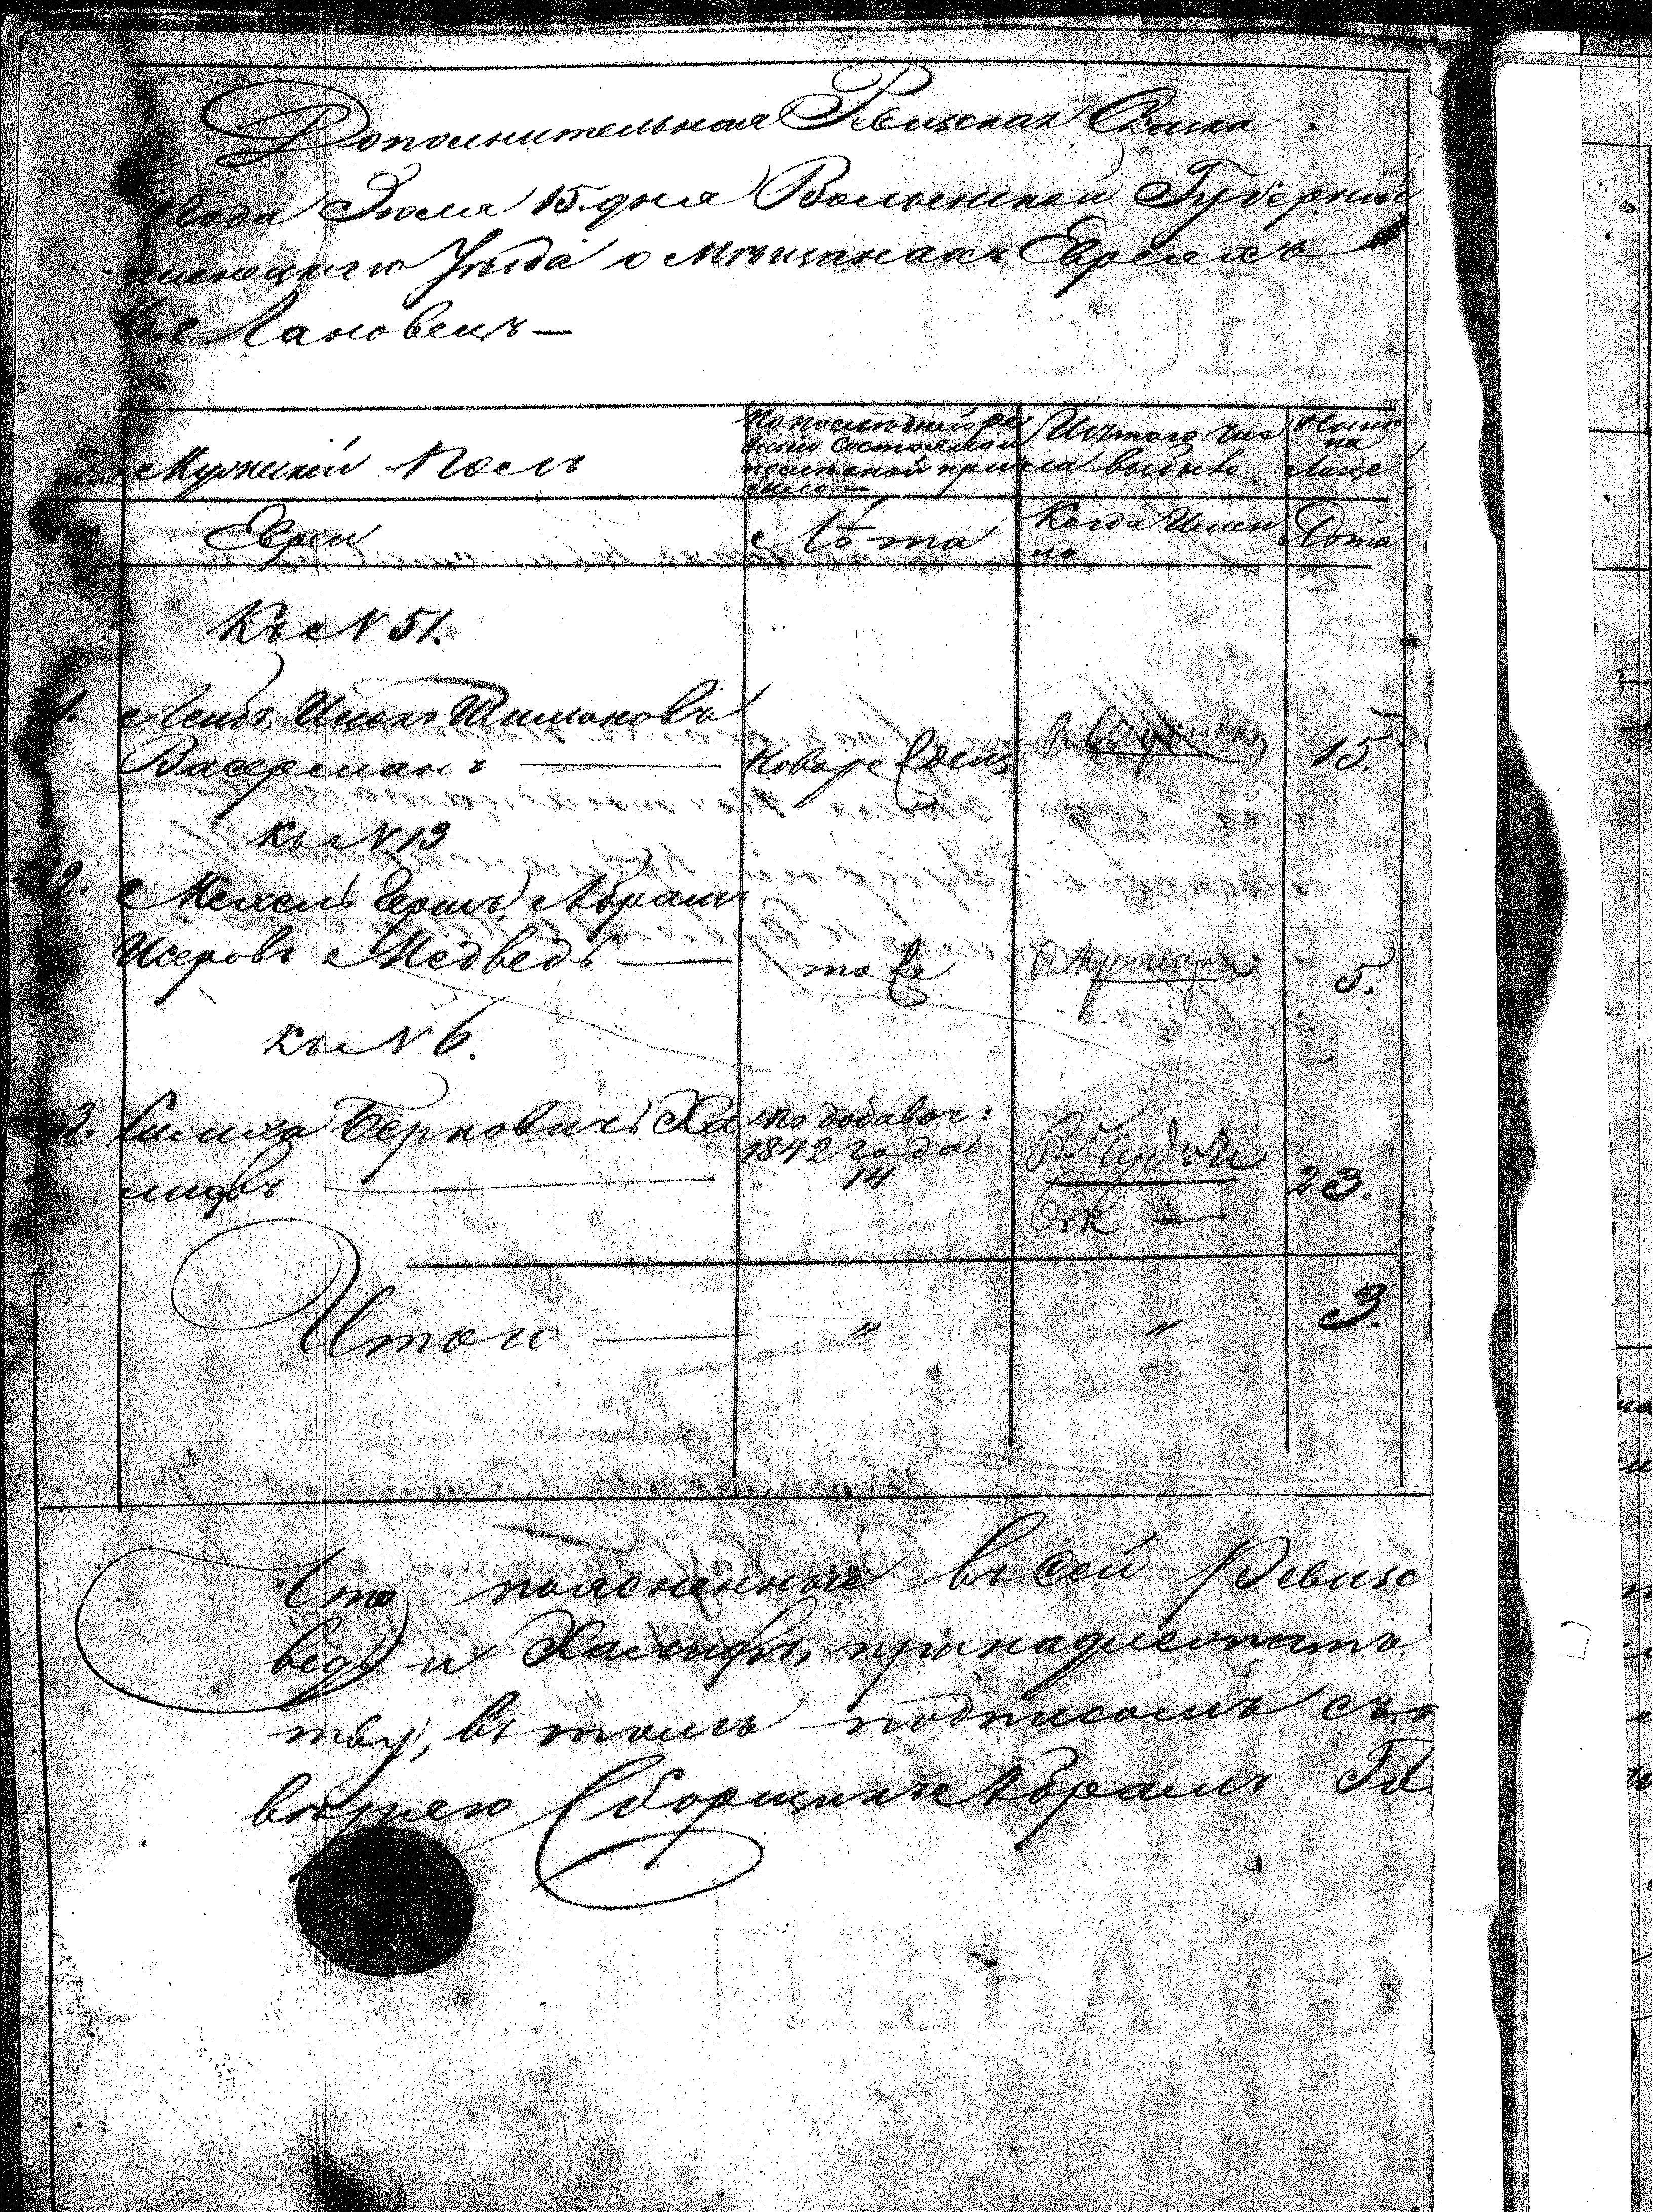 Дополнительная Ревизская Сказка.
года Июля 15. дня Волынской Губерніи
менецкаго Уѣзда о Мѣщанахъ Евреяхъ
М. Лановецъ —
Мужескій Полъ
По послѣдней ре
визіи состояло и
послѣ оной при
было. —
Изъ того чис
ла выбыло.
Нынѣ
на
Лицо
Евреи
Лѣта
Когда Имен
но
Лѣта
Къ N 51.
1. Лейбъ, Ицекъ Шимановъ
Васерманъ — Новорожденъ 15.
къ N 13
2. Мехель Гершъ, Абрамъ
Исеровъ Медведь — тоже 5.
къ N 6.
3. Симха Берковичъ Ха
лифъ — по добавоч:
1842 года
14 23.
Итого — " " 3.
Что поясненные въ сей Ревизс
ведь и Халифъ, принадлежатъ
тву, въ томъ подписомъ съ
вѣряю Сборщикъ Абрамъ